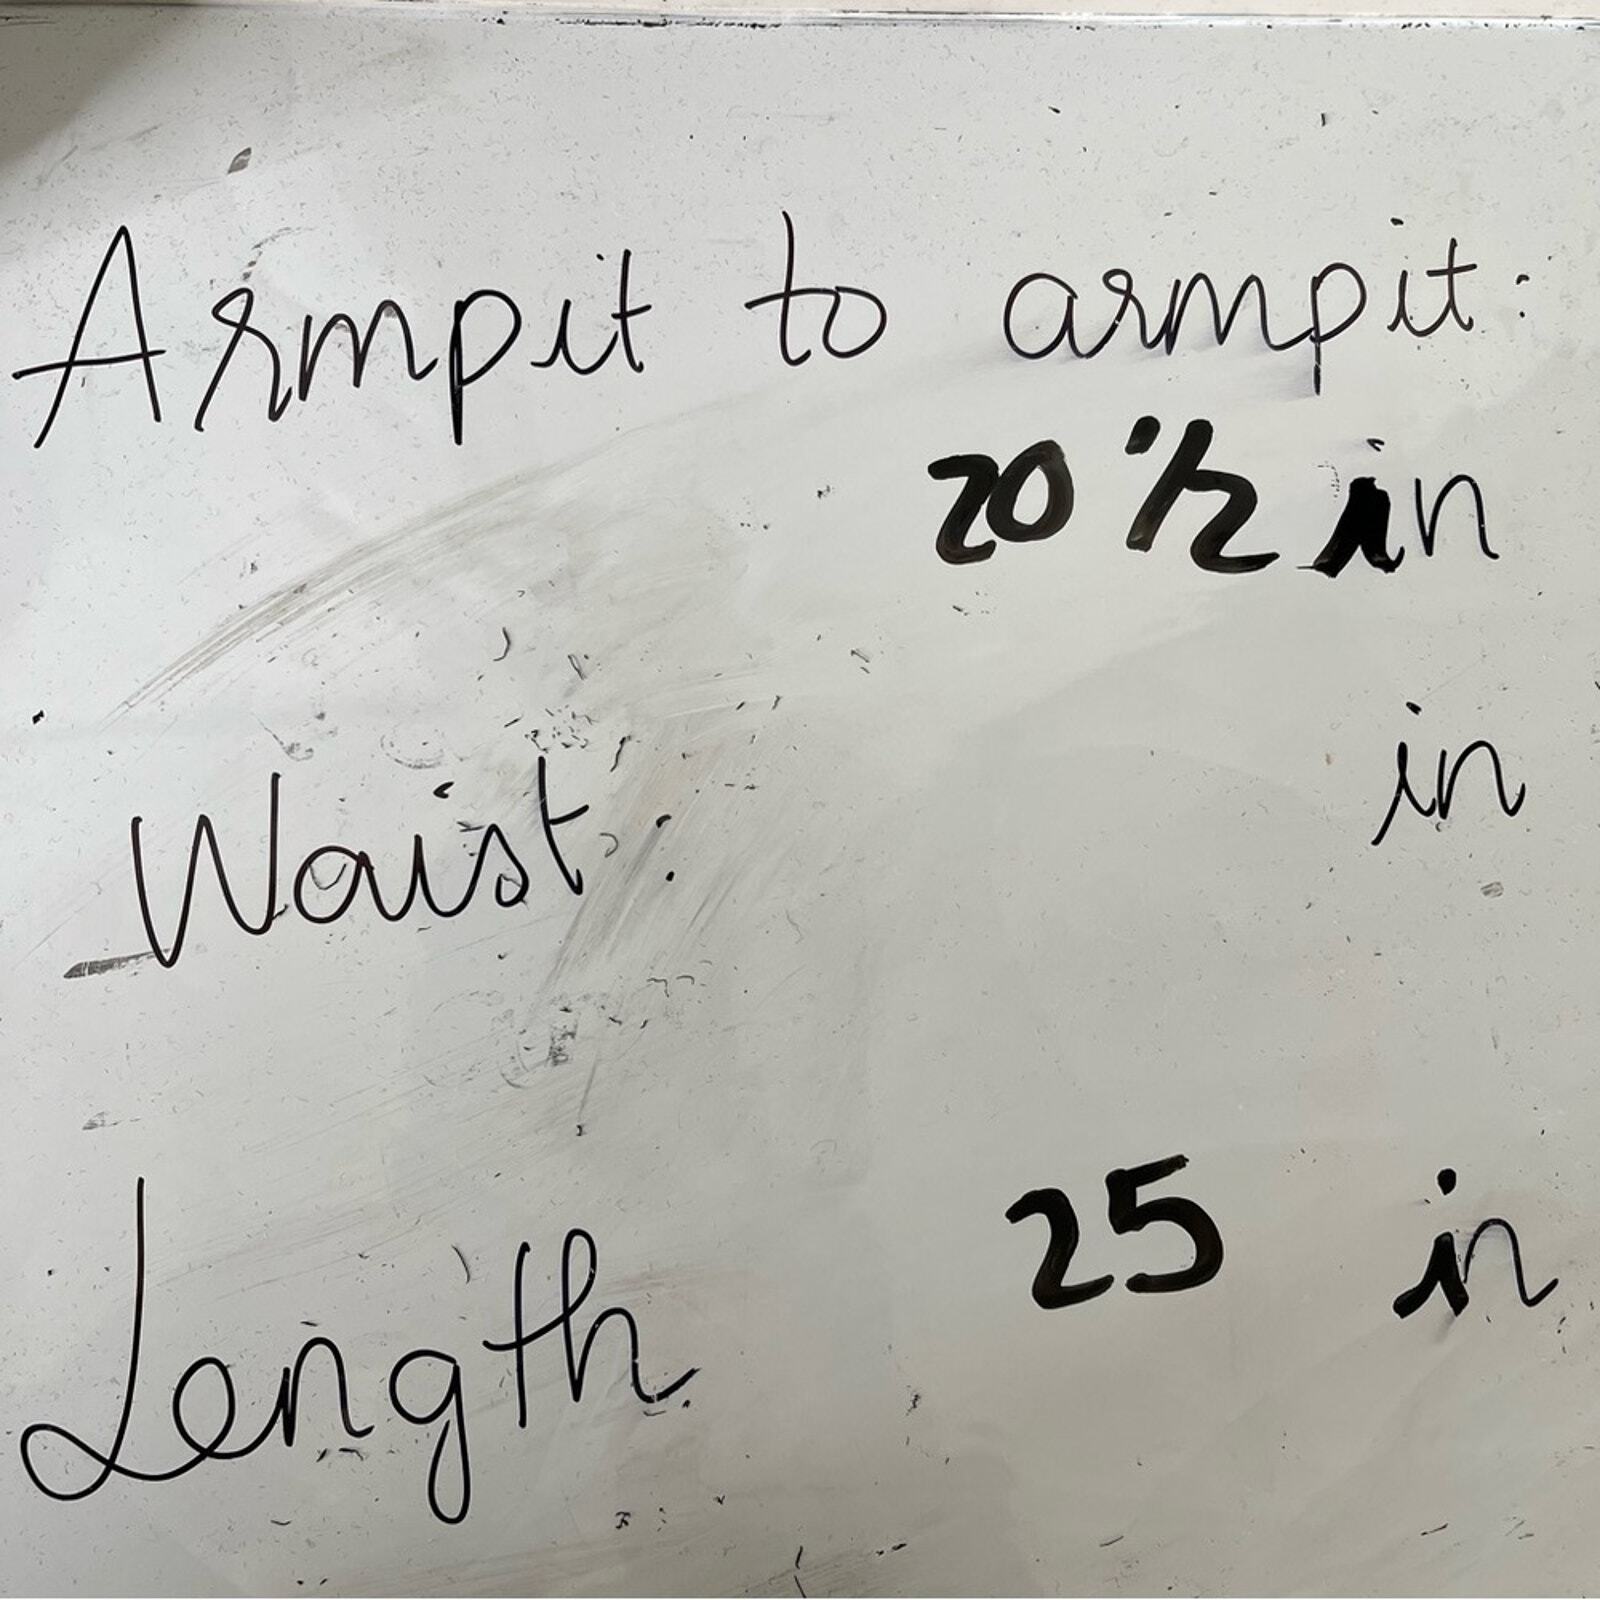 Armpit to armpit:
20 1/2 in
in
Waist:
25 in
Length